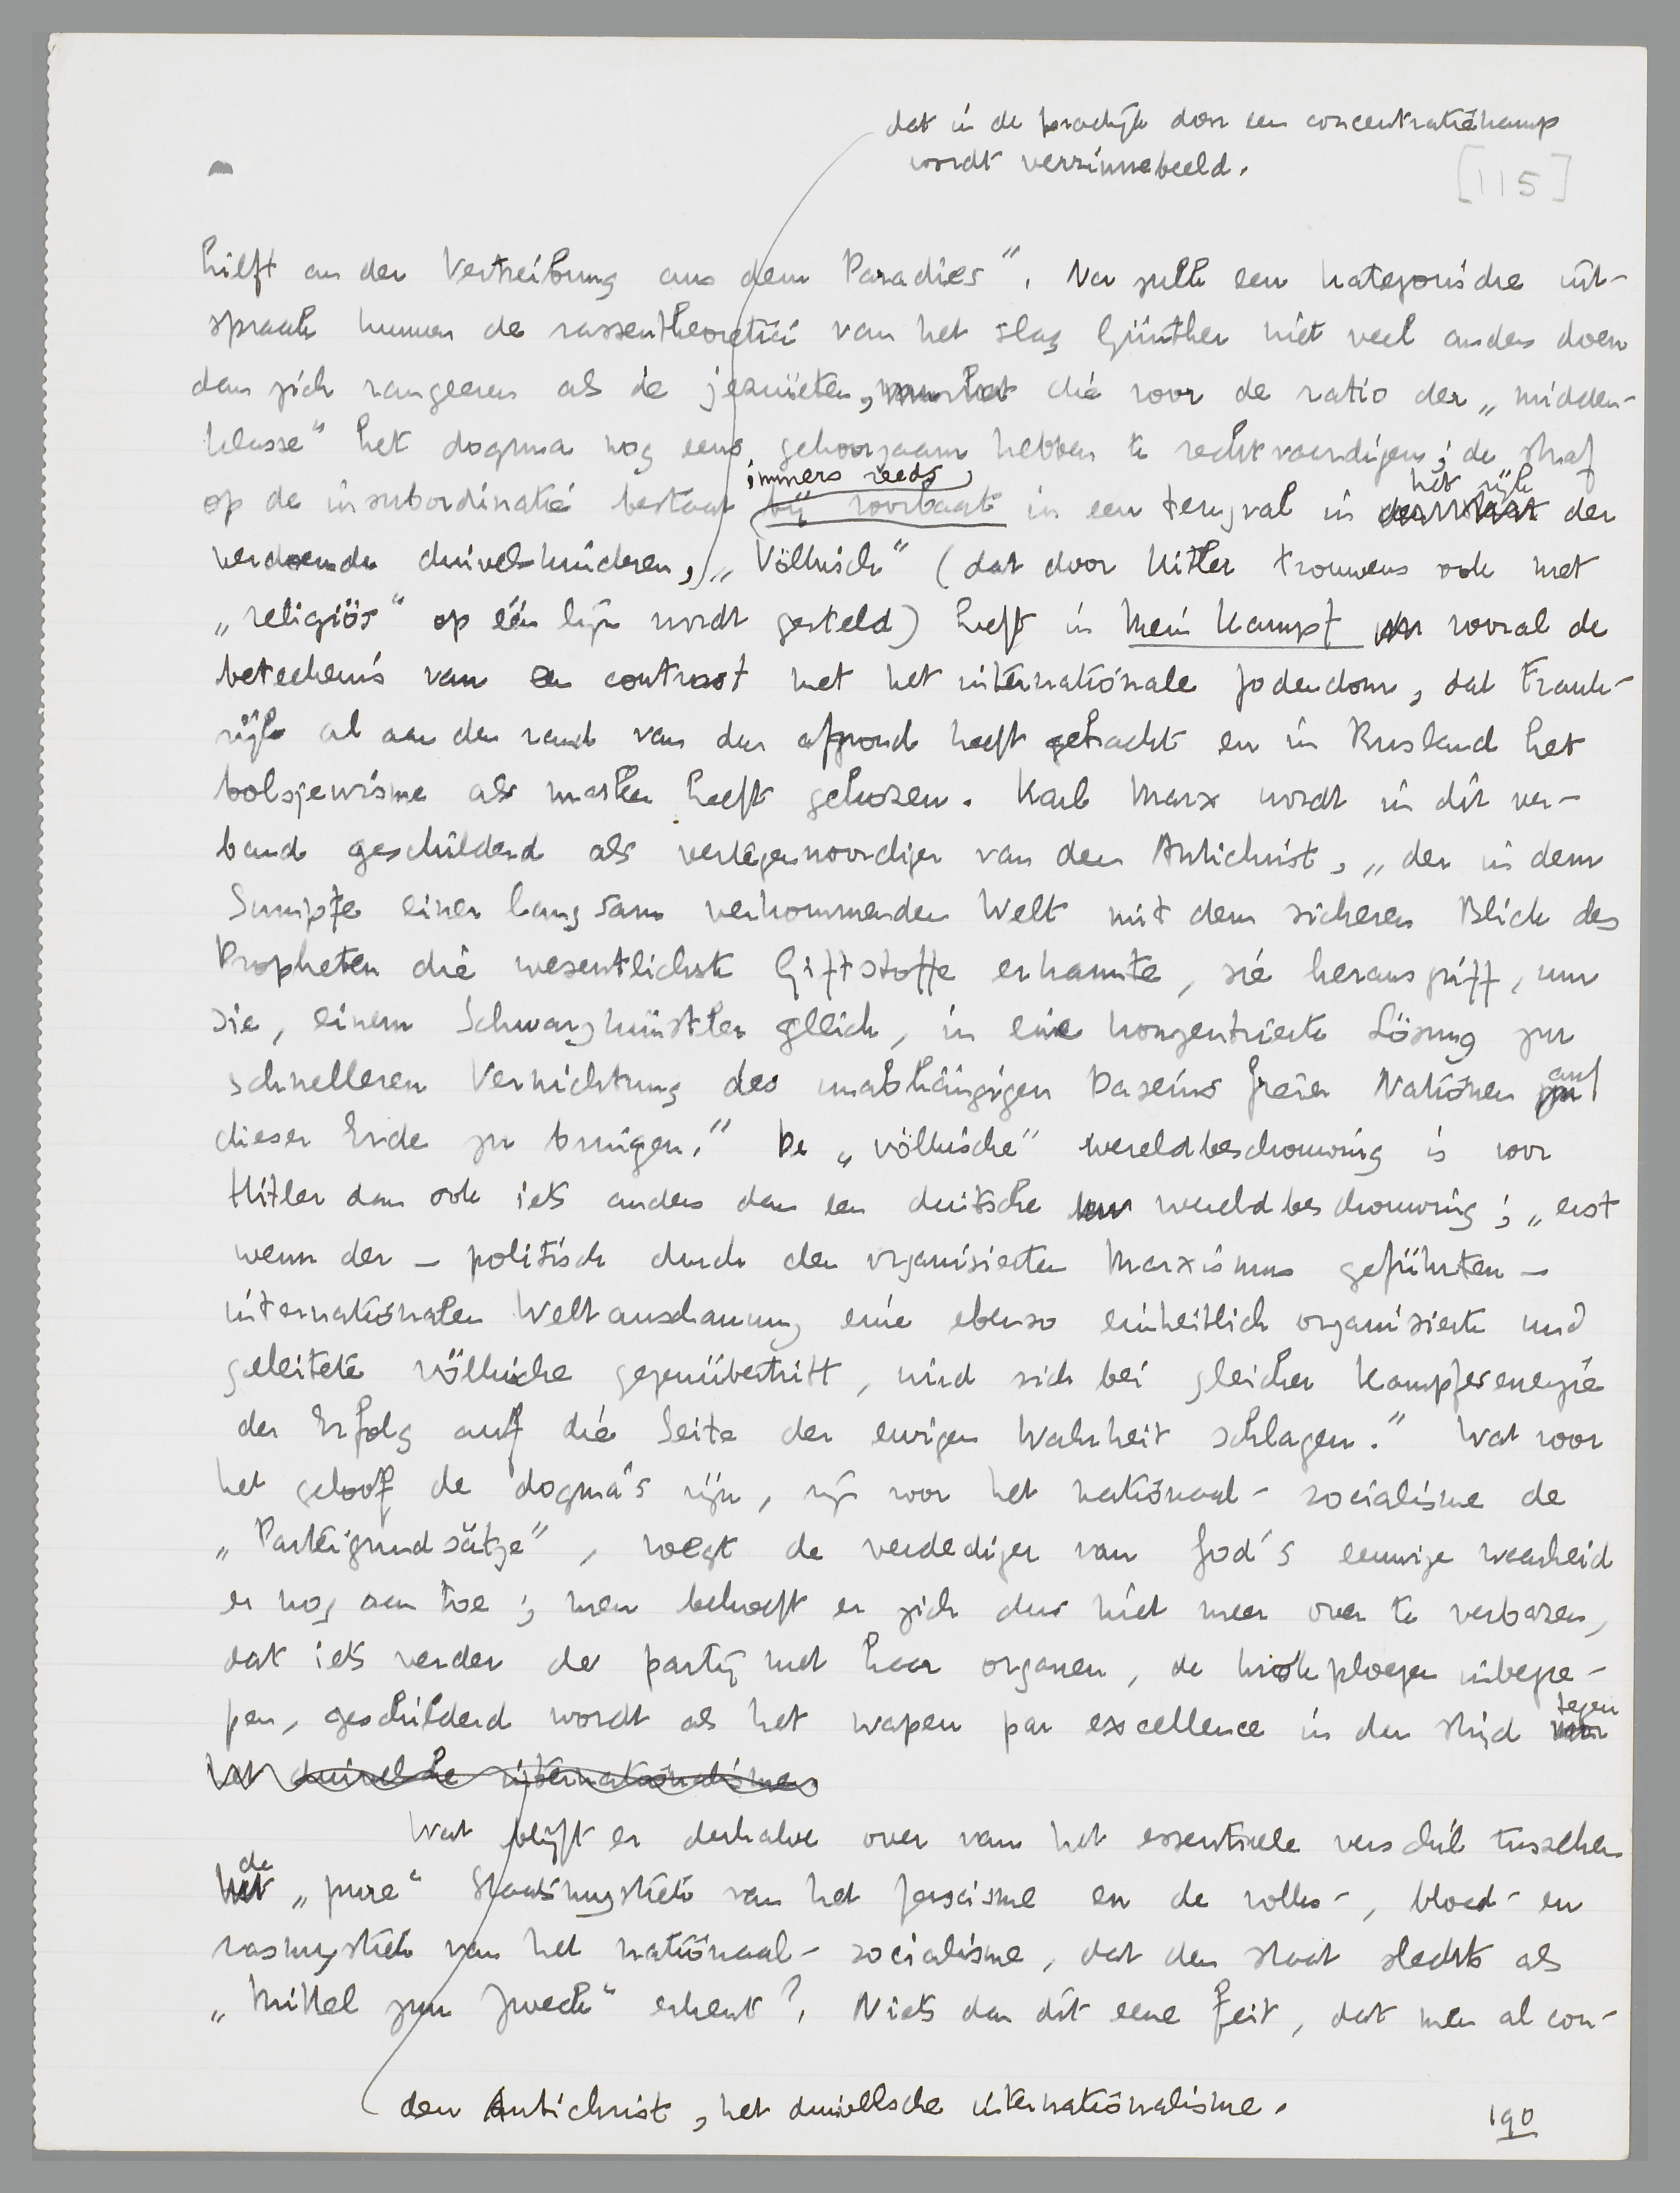 dat in de practijk door een concentratiekamp
wordt verzinnebeeld.
[115]
hilft an der Vertreibung aus dem Paradies". Na zulk een kategorische uit-
spraak kunnen de rassentheoretici van het slag Günther niet veel anders doen
dan zich rangeeren als de jezuieten, die voor de ratio der „midden-
klasse" het dogma nog eens gehoorzaam hebben te rechtvaardigen; de straf
op de insubordinatie bestaat immers reeds bij voorbaat in een terugval in het rijk der
verdoemde duivelskinderen, „Völkisch" (dat door Hitler trouwens ook met
„religiös" op één lijn wordt gesteld) heeft in Mein Kampf vooral de
beteekenis van een contrast met het internationale Jodendom, dat Frank-
rijk al aan den rand van den afgrond heeft gebracht en in Rusland het
bolsjewisme als masker heeft gekozen. Karl Marx wordt in dit ver-
band geschilderd als vertegenwoordiger van den Antichrist, „der in dem
Sumpfe einer langsam verkommenden Welt mit dem sicheren Blick des
Propheten die wesentlichste Giftstoffe erkannte, sie herausgriff, um
sie, einem Schwarzkünstler gleich, in eine konzentrierte Lösung zur
schnelleren Vernichtung des unabhängigen Daseins freier Nationen auf
dieser Erde zu bringen." De „völkische" wereldbeschouwing is voor
Hitler dan ook iets anders dan een duitsche wereldbeschouwing; „erst
wenn der – politisch durch den organisierten Marxismus geführten –
internationalen Weltanschauung eine ebenso einheitlich organisierte und
geleitete völkische gegenübertritt, wird sich bei gleicher Kampfesenergie
der Erfolg auf die Seite der ewigen Wahrheit schlagen." Wat voor
het geloof de dogma's zijn, zijn voor het nationaal-socialisme de
„Parteigrundsätze", voegt de verdediger van God's eeuwige waarheid
er nog aan toe; men behoeft er zich dus niet meer over te verbazen,
dat iets verder de partij met haar organen, de knokploegen inbegre-
pen, geschilderd wordt als het wapen par excellence in den strijd tegen
het duivelsche internationalisme
Wat blijft er derhalve over van het essentieele verschil tusschen
de „pure" Staatsmystiek van het fascisme en de volks-, bloed- en
rasmystiek van het nationaal-socialisme, dat den staat slechts als
„Mittel zum Zweck" erkent? Niets dan dit eene feit, dat men al con-
den Antichrist, het duivelsche internationalisme.
190